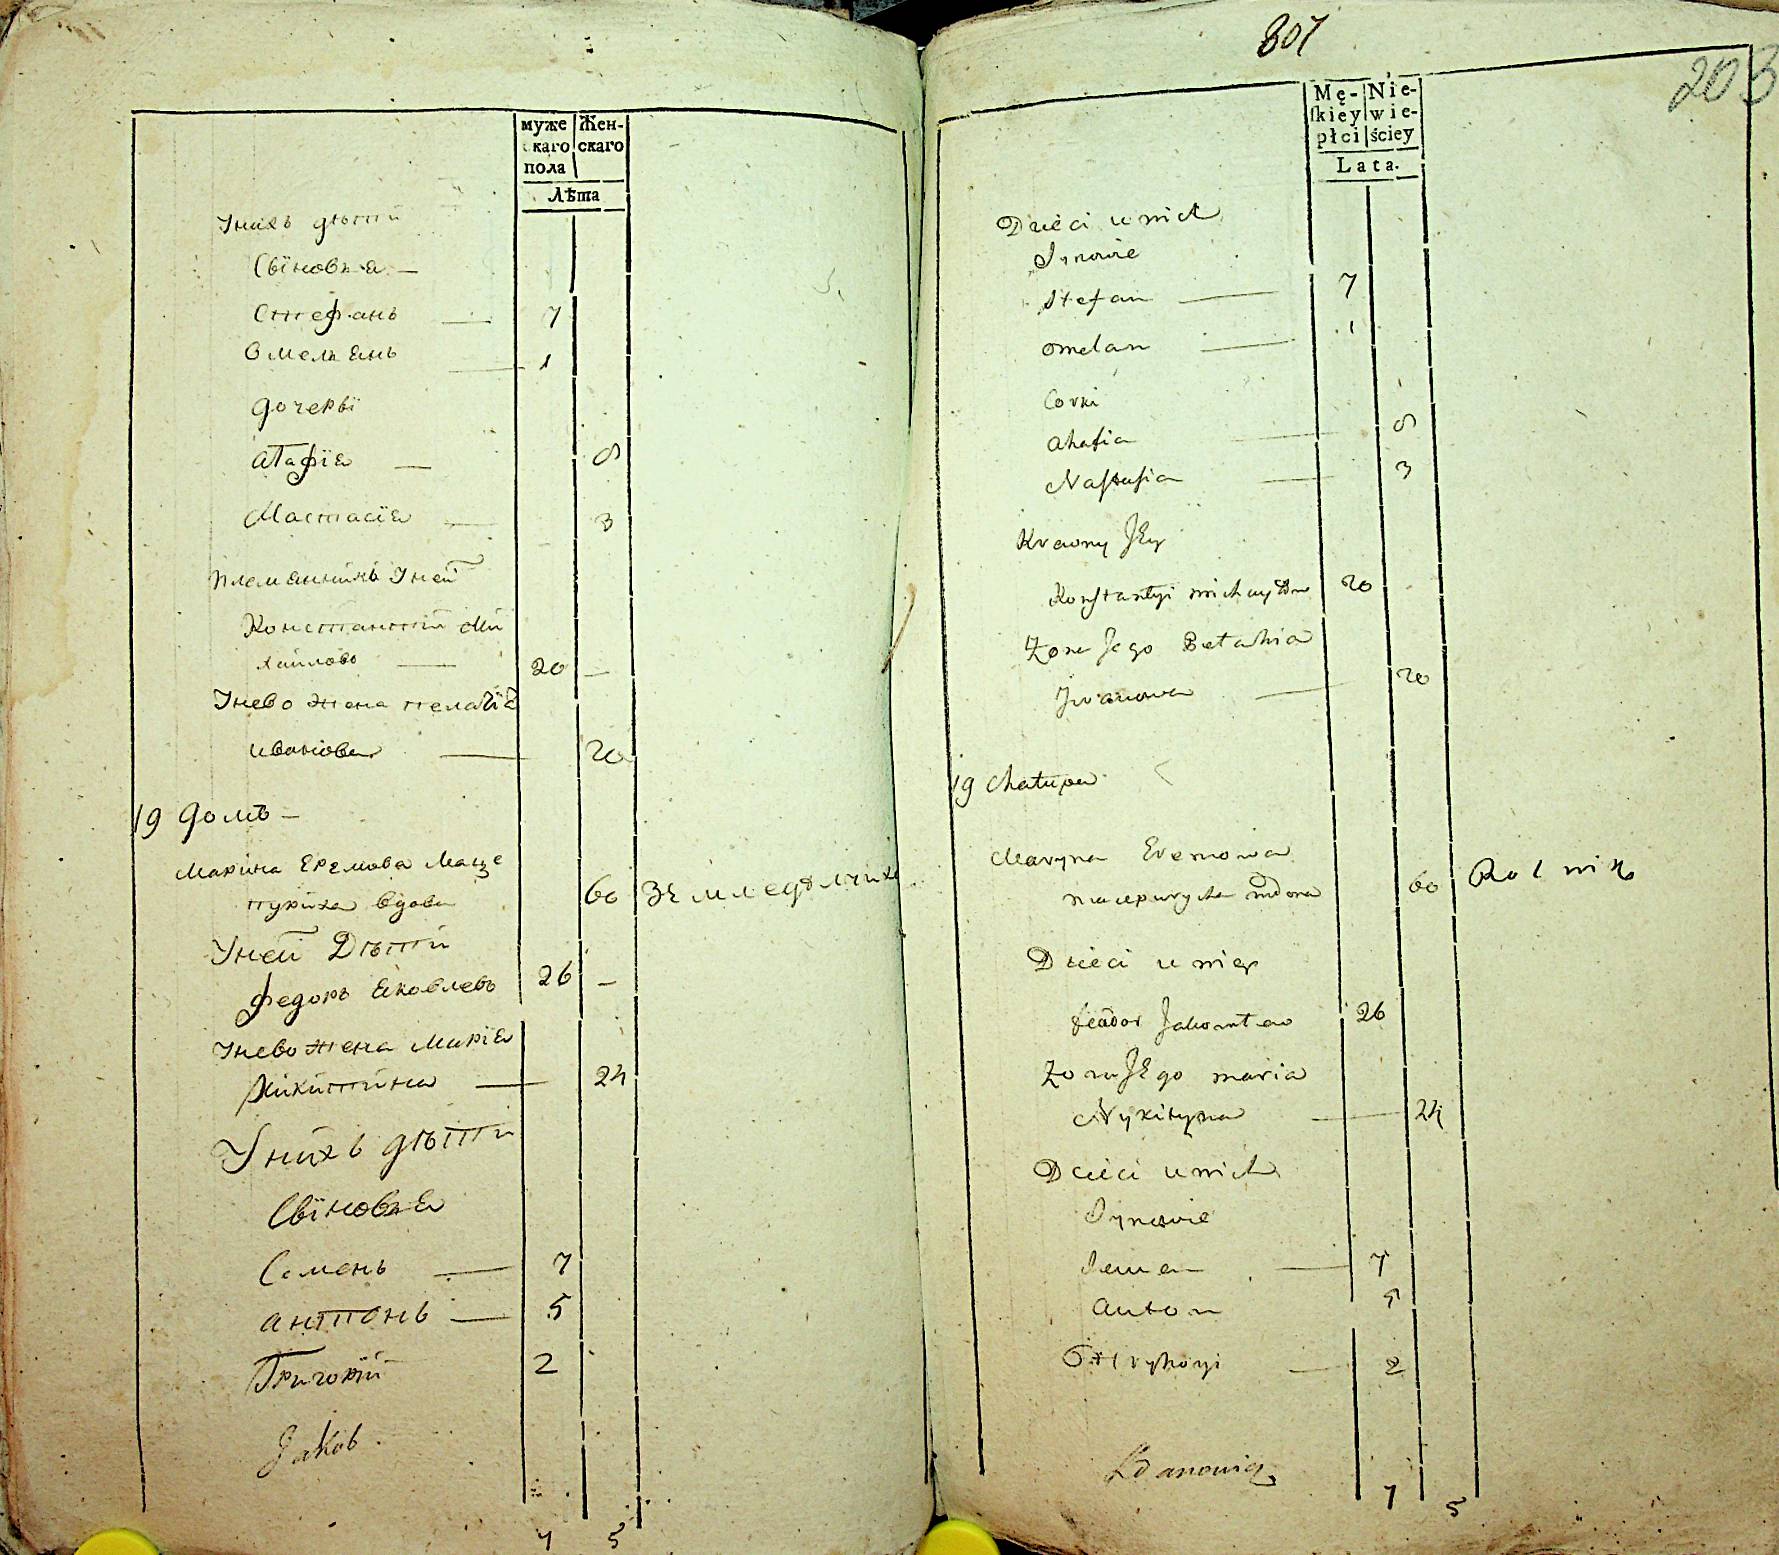 муже
скаго
пола
Жен-
скаго
Лѣта
Унихъ дѣтти
Сыновья —
Сттефанъ — 7
Омельянъ — 1
дочеры
агафія — 8
Настасія — 3
племянникъ Уней
Константтий Ми
хаилово — 20 —
Унево жена пелагія
иванова — 20
19 домъ —
Марина Еремова Маце
пуриха вдова 60 Земледѣлчихъ
Уней Дѣтти
федоръ яковлевъ 26 —
Унево жена Марія
Никиттина — 24
Унихъ дѣтти
Сыновья
Семенъ — 7
анттонъ — 5
Григорій 2
Jakob
7 5
801
203
Mę-
skiey
płci
Nie-
wie-
ściey
Lata.
Dzieci u nich
Synowie
Stefan — 7
Omelan — 1
Corki
Ahafia — 8
Nastasia — 3
Krewny Jey
Konstantyi Michayłow 20
Żona Jego Pelahia
Iwanowa — 20
19 Chałupa
Maryna Eremowa
Macepurycha wdowa 60 Rolnik
Dzieci u niey
feodor Jakowlew 26
Żona Jego Maria
Nykityna — 24
Dzieci u nich
Synowie
Semen — 7
Anton 5
Hryhoryi — 2
Zdanowicz
7 5